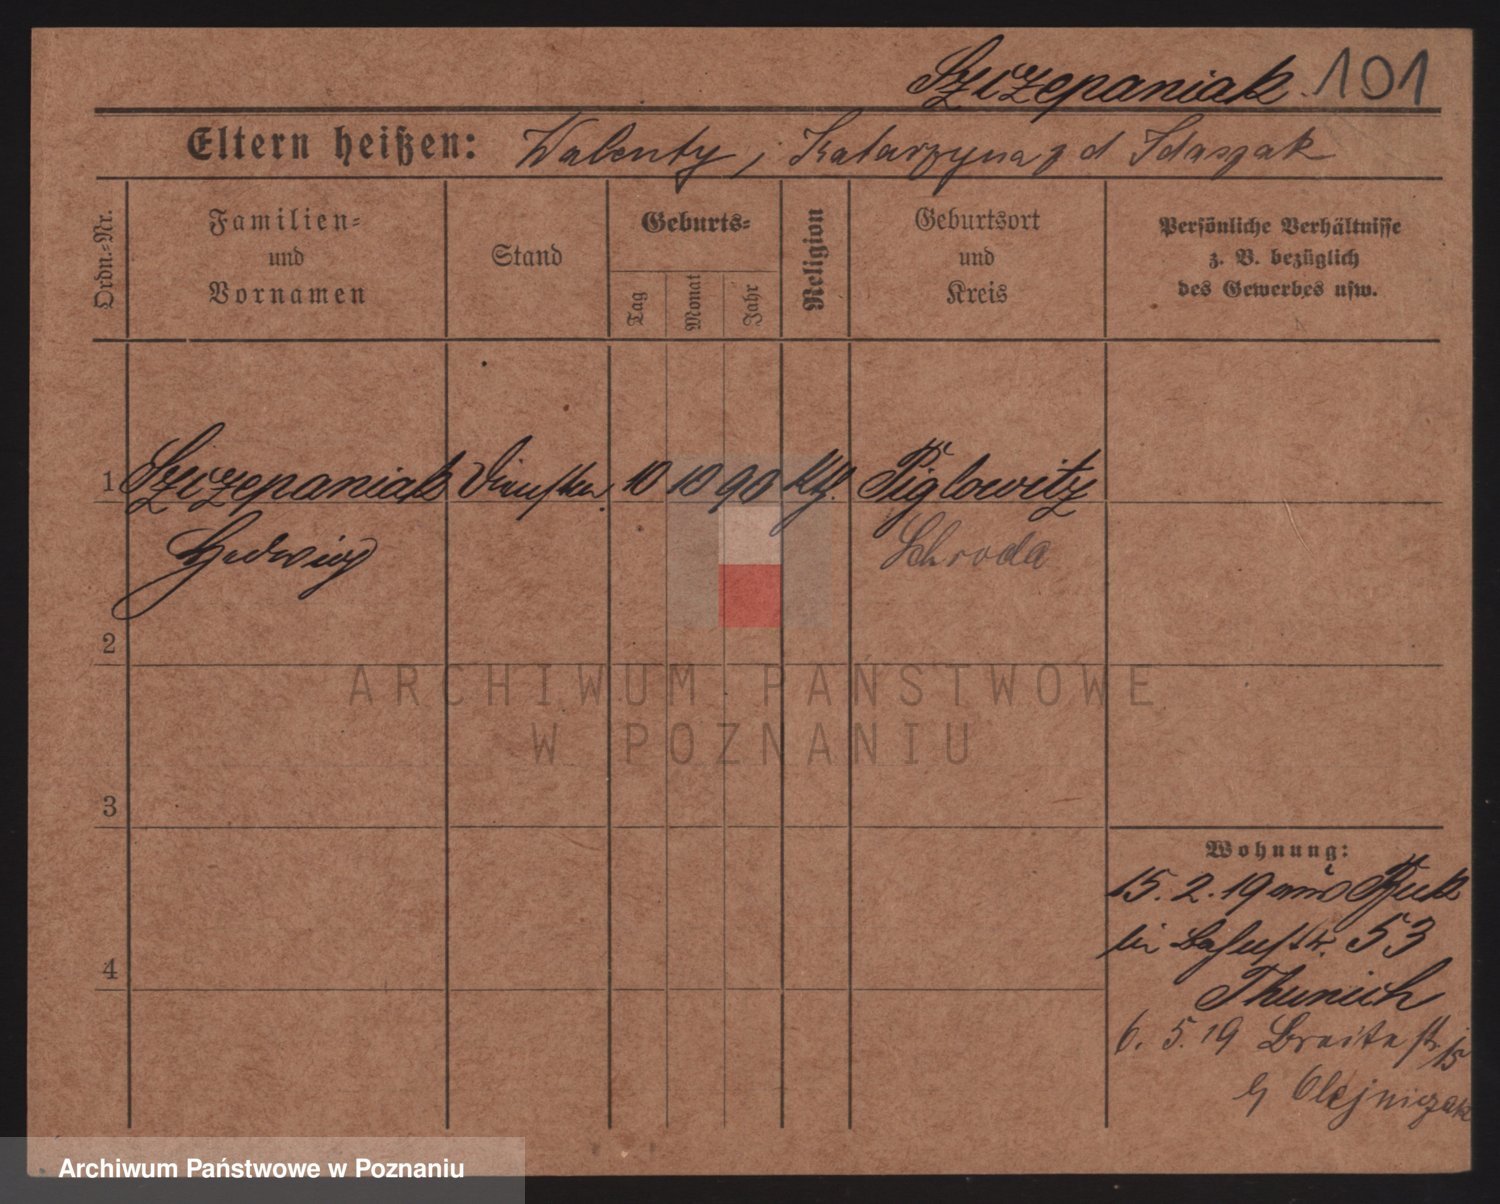 Szczepaniak 101
Eltern heißen: Walenty, Katarzyna z d Idaszak
Ordn.-Nr.
Familien-
und
Vornamen
Stand
Geburts-
Tag
Monat
Jahr
Religion
Geburtsort
und
Kreis
Persönliche Verhältnisse
z. B. bezüglich
des Gewerbes usw.
1 Szczepaniak 10 10 90 Kth. Piglowitz
Hedwig Schroda
2
3
4
Wohnung:
15. 2. 19 aus
53
Thunich
6. 5. 19 Breitestr. 15
b/ Olejniczak
ARCHIWUM PAŃSTWOWE
W POZNANIU
Archiwum Państwowe w Poznaniu